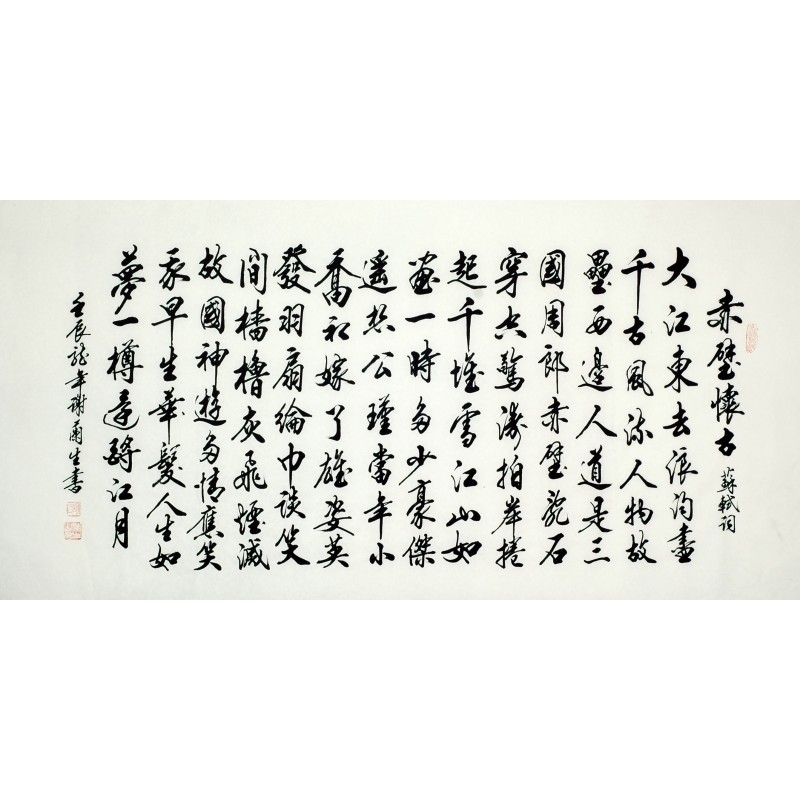 赤壁懷古 蘇軾詞
大江東去浪淘盡
千古風流人物故
壘西邊人道是三
國周郎赤壁亂石
穿空驚濤拍岸捲
起千堆雪江山如
畫一時多少豪傑
遙想公瑾當年小
喬初嫁了雄姿英
發羽扇綸巾談笑
間檣櫓灰飛煙滅
故國神遊多情應笑
我早生華髮人生如
夢一樽還酹江月
壬辰龍年謝爾生書